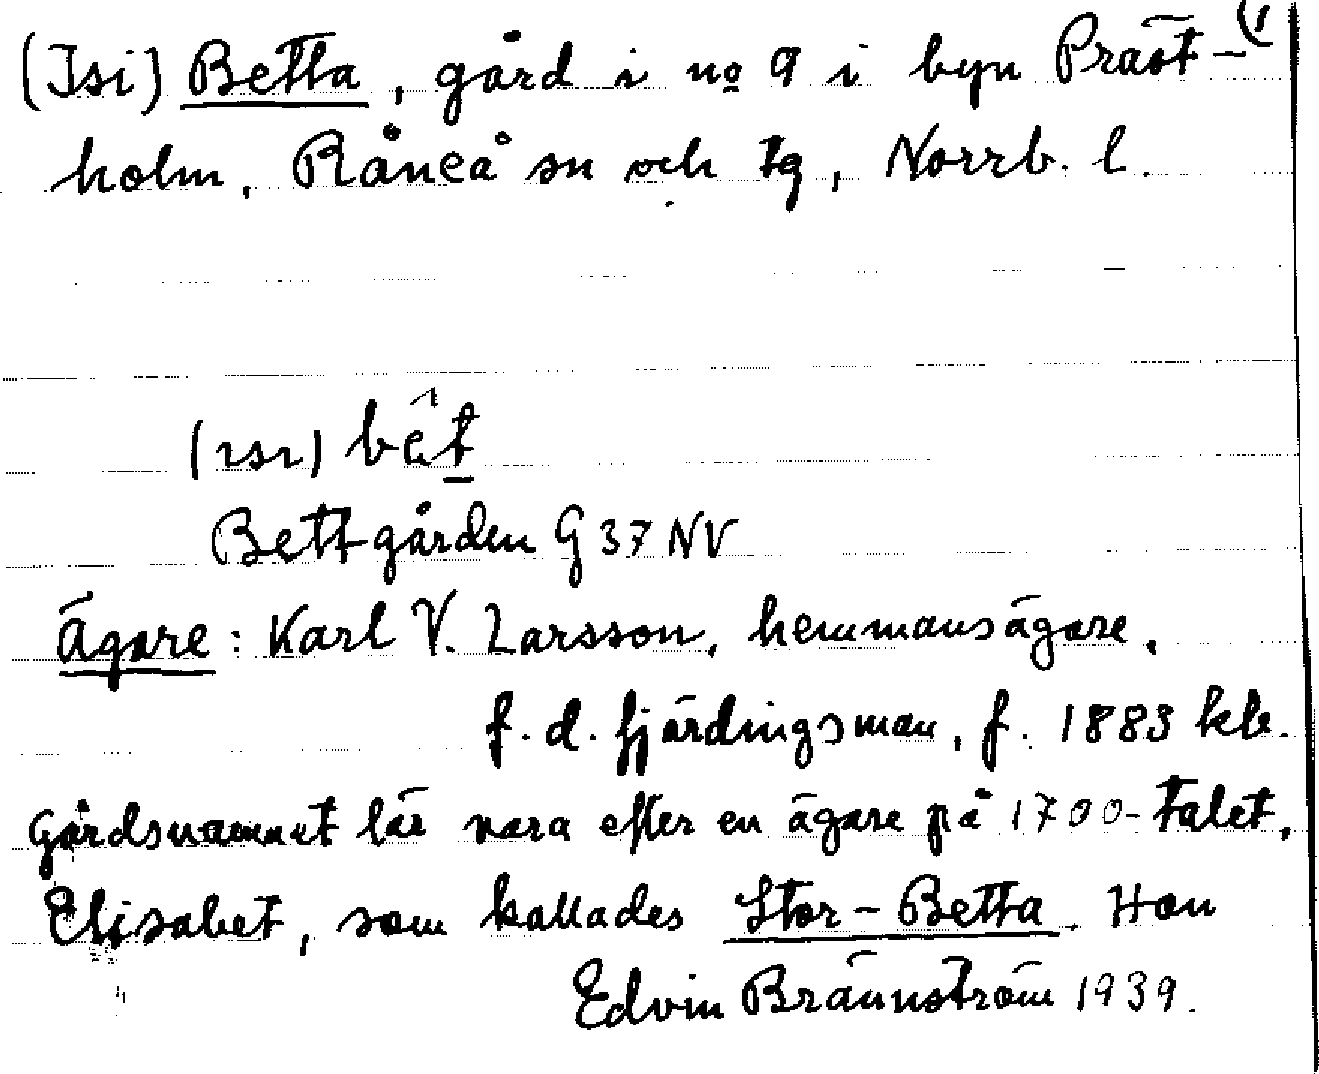 (Isi) Betta, gård i no 9 i byn Präst- (1
holm, Råneå sn och tg, Norrb. l.
(ɪsɪ) bêt
Bett-gården G 37 NV
Ägare: Karl V. Larsson, hemmansägare,
f. d. fjärdingsman, f. 1883 kb.
Gårdsnamnet lär vara efter en ägare på 1700-talet,
Elisabet, som kallades Stor-Betta. Hon
Edvin Brännström 1939.